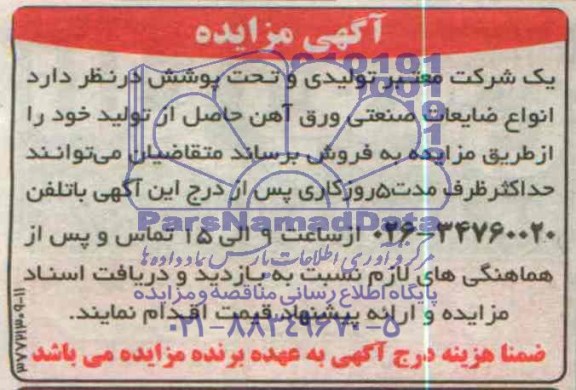 آگهی مزایده
یک شرکت معتبر تولیدی و تحت پوشش درنظر دارد
انواع ضایعات صنعتی ورق آهن حاصل از تولید خود را
ازطریق مزایده به فروش برساند متقاضیان می‌توانند
حداکثر ظرف مدت۵روزکاری پس از درج این آگهی باتلفن
ParsNamadData
۰۲۶-۳۴۷۶۰۰۲۰ ازساعت ۹ الی ۱۵ تماس و پس از
مرکز فرآوری اطلاعات پارس نماد داده ها
هماهنگی های لازم نسبت به بازدید و دریافت اسناد
پایگاه اطلاع رسانی مناقصه و مزایده
مزایده و ارائه پیشنهاد قیمت اقدام نمایند.
۰۲۱-۸۸۳۴۹۶۷۰-۵
ضمنا هزینه درج آگهی به عهده برنده مزایده می باشد